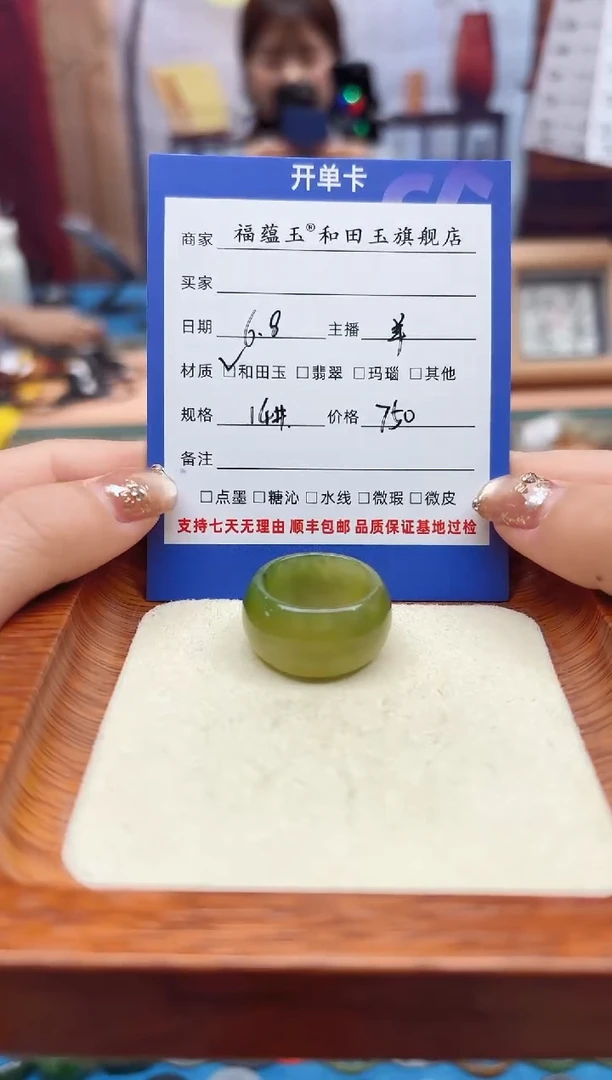 开单卡
商家 福蕴玉®和田玉旗舰店
买家
日期 6.8 主播 羊
材质 ☑和田玉 □翡翠 □玛瑙 □其他
规格 14# 价格 750
备注
□点墨 □糖沁 □水线 □微瑕 □微皮
支持七天无理由 顺丰包邮 品质保证基地过检